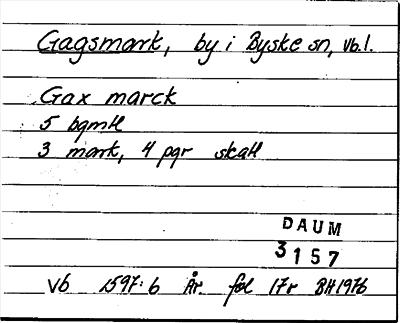 Gagsmark, by i Byske sn, Vb.l.
Gax marck
5 bqmtl
3 mark, 4 pgr skatt
DAUM
3157
Vb 1597:6 År. fol 17r BH1976